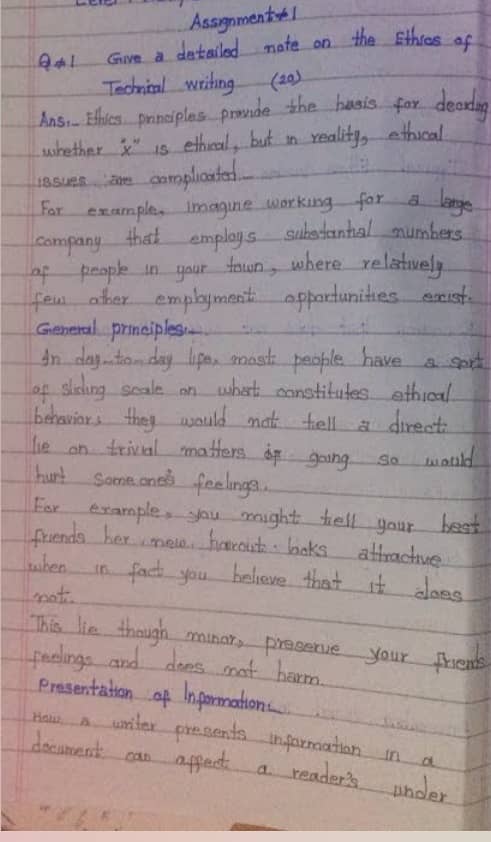 Assignment#1
Q#1 Give a detailed note on the Ethics of
Technical writing (20)
Ans:- Ethics principles provide the basis for deciding
whether "x" is ethical, but in reality, ethical
issues are complicated.
For example, imagine working for a large
company that employs substantial numbers
of people in your town, where relatively
few other employment opportunities exist.
General principles:-
In day-to-day life, most people have a sort
of sliding scale on what constitutes ethical
behavior, they would not tell a direct
lie on trivial matters if going so would
hurt Someone's feelings.
For example, you might tell your best
friends her new haircut looks attractive
when in fact you believe that it does
not.
This lie though minor, preserve your friends
feelings and does not harm.
Presentation of Information:-
How a writer presents information in a
document can affect a reader's under